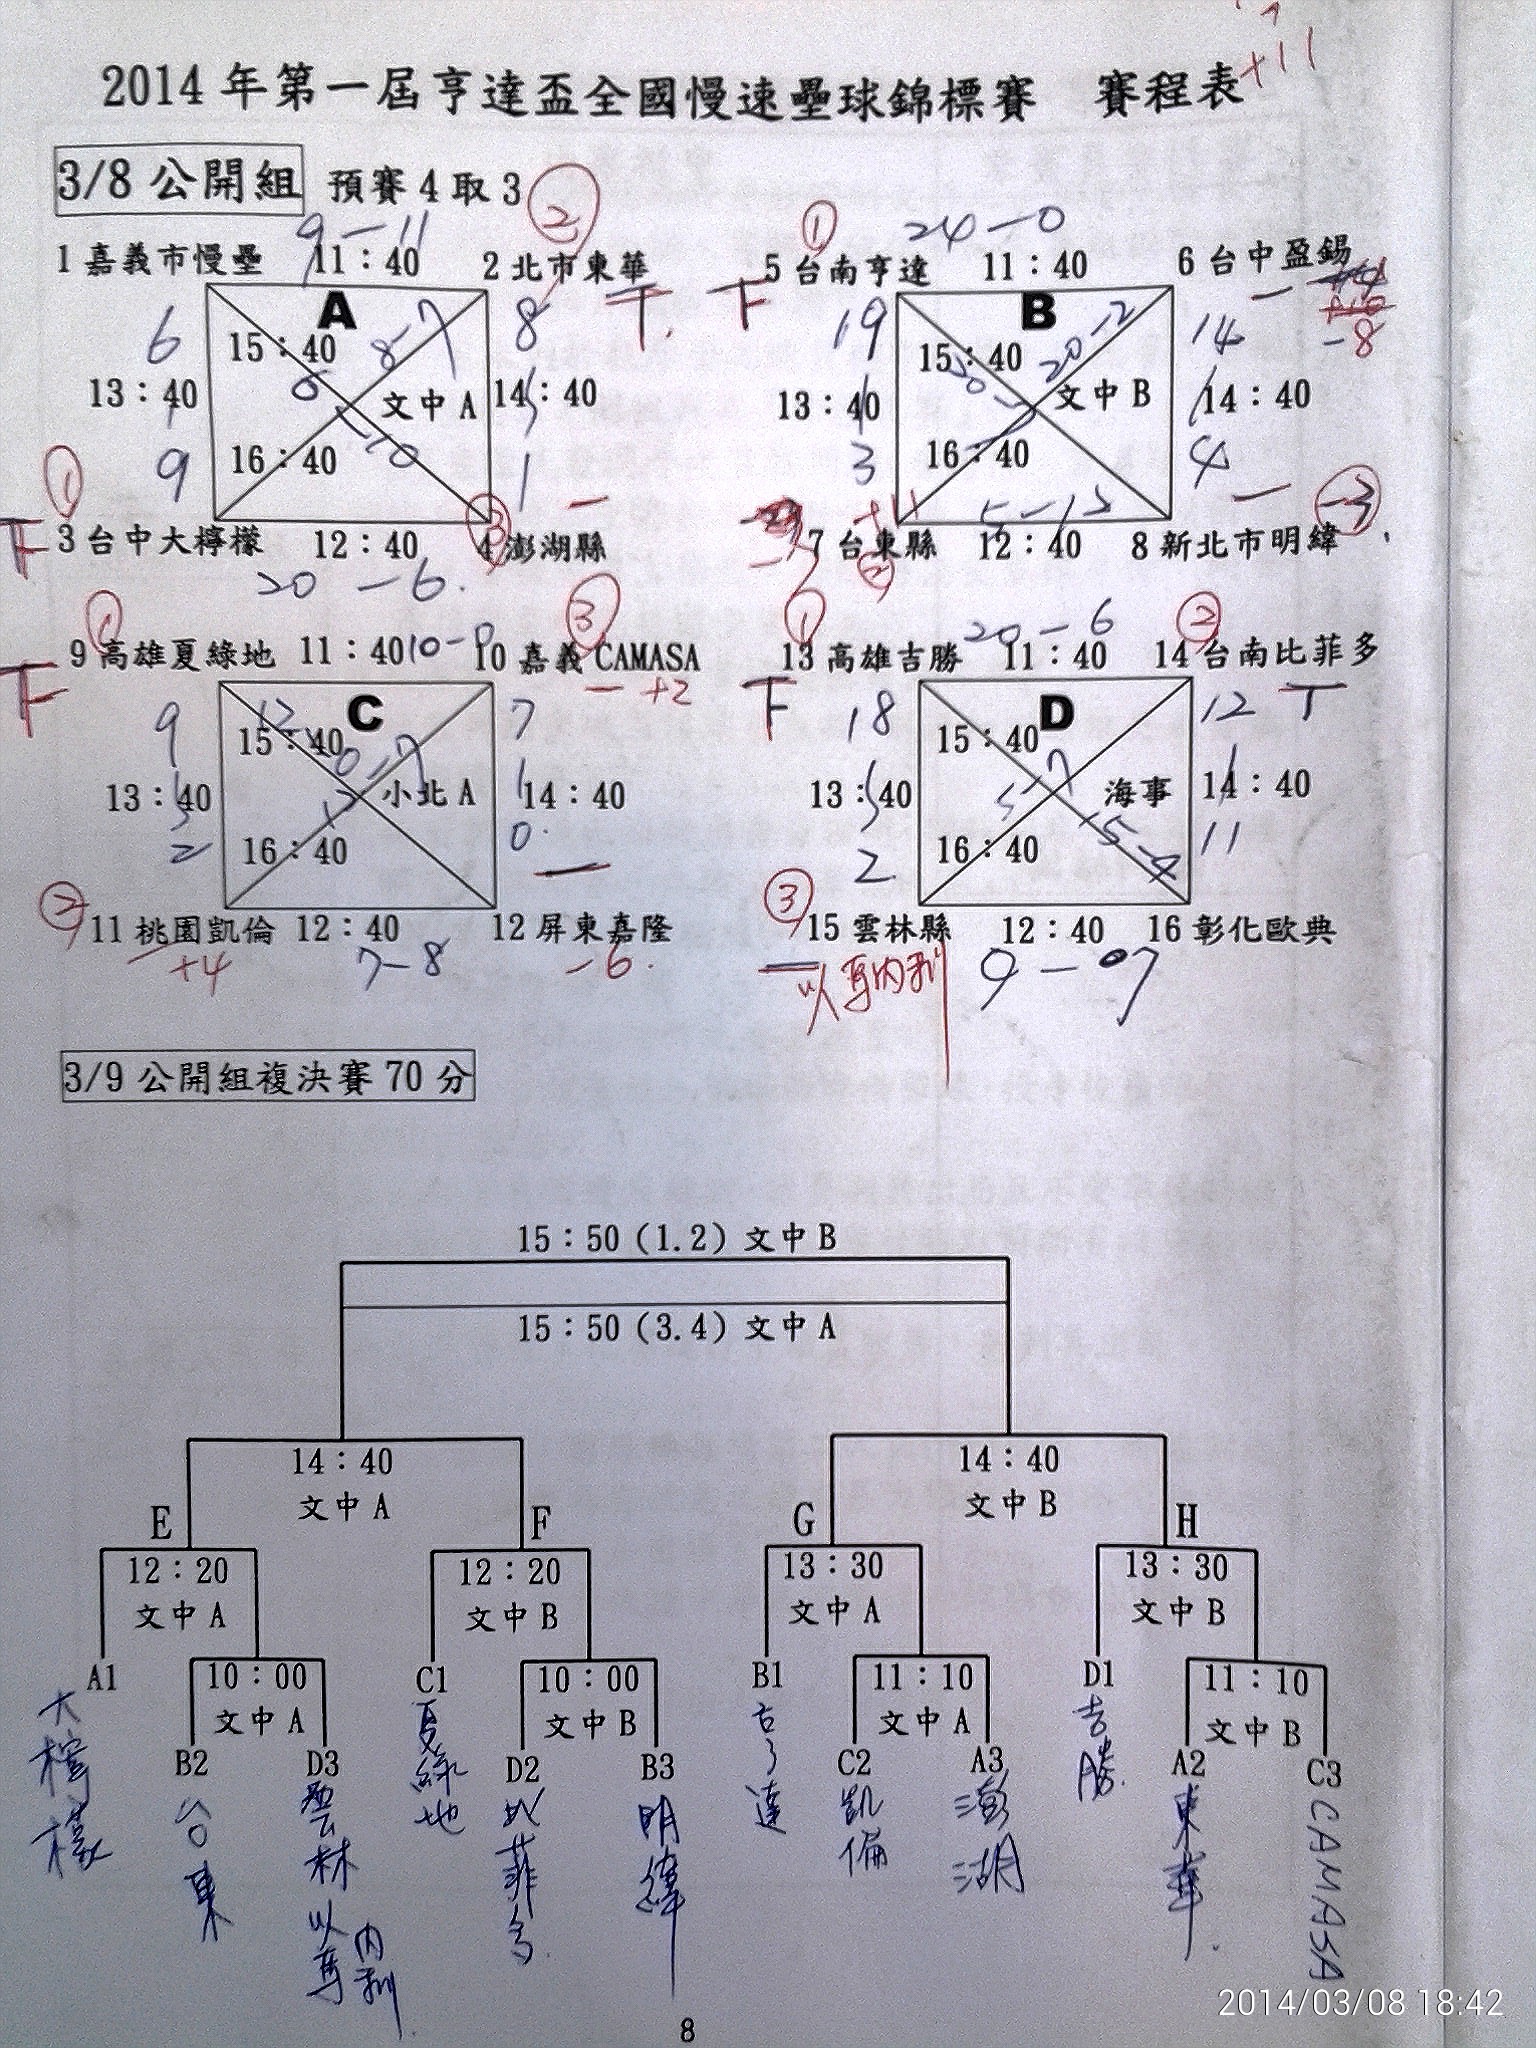 +11
2014 年第一屆亨達盃全國慢速壘球錦標賽　賽程表
3/8 公開組　預賽 4 取 3
② ①
9-11 24-0
1 嘉義市慢壘 11：40 2 北市東華 5 台南亨達 11：40 6 台中盈錫
A B
6 8 19 14 -8
15：40 8-7 15：40 20-2
13：40 文中 A 14：40 13：40 文中 B 14：40
9 16：40 1 3 16：40 4
① ③ -3
3 台中大檸檬 12：40 4 澎湖縣 7 台東縣 12：40 8 新北市明緯
20-6 ② 5-12
① ③ ① ②
9 高雄夏綠地 11：40 10-0 10 嘉義 CAMASA 13 高雄吉勝 20-6 11：40 14 台南比菲多
+2
C D
9 7 18 12
15：40 15：40
13：40 小北 A 14：40 13：40 海事 14：40
2 16：40 0 2 16：40 15-4 11
② ③
11 桃園凱倫 12：40 12 屏東嘉隆 15 雲林縣 12：40 16 彰化歐典
+4 7-8 -6 以馬內利 9-7
3/9 公開組複決賽 70 分
15：50（1.2）文中 B
15：50（3.4）文中 A
14：40 14：40
文中 A 文中 B
E F G H
12：20 12：20 13：30 13：30
文中 A 文中 B 文中 A 文中 B
A1 10：00 C1 10：00 B1 11：10 D1 11：10
文中 A 文中 B 文中 A 文中 B
B2 D3 D2 B3 C2 A3 A2 C3
大檸檬 台東 雲林以馬內利 夏綠地 比菲多 明緯 亨達 凱倫 澎湖 吉勝 東華 CAMASA
8
2014/03/08 18:42